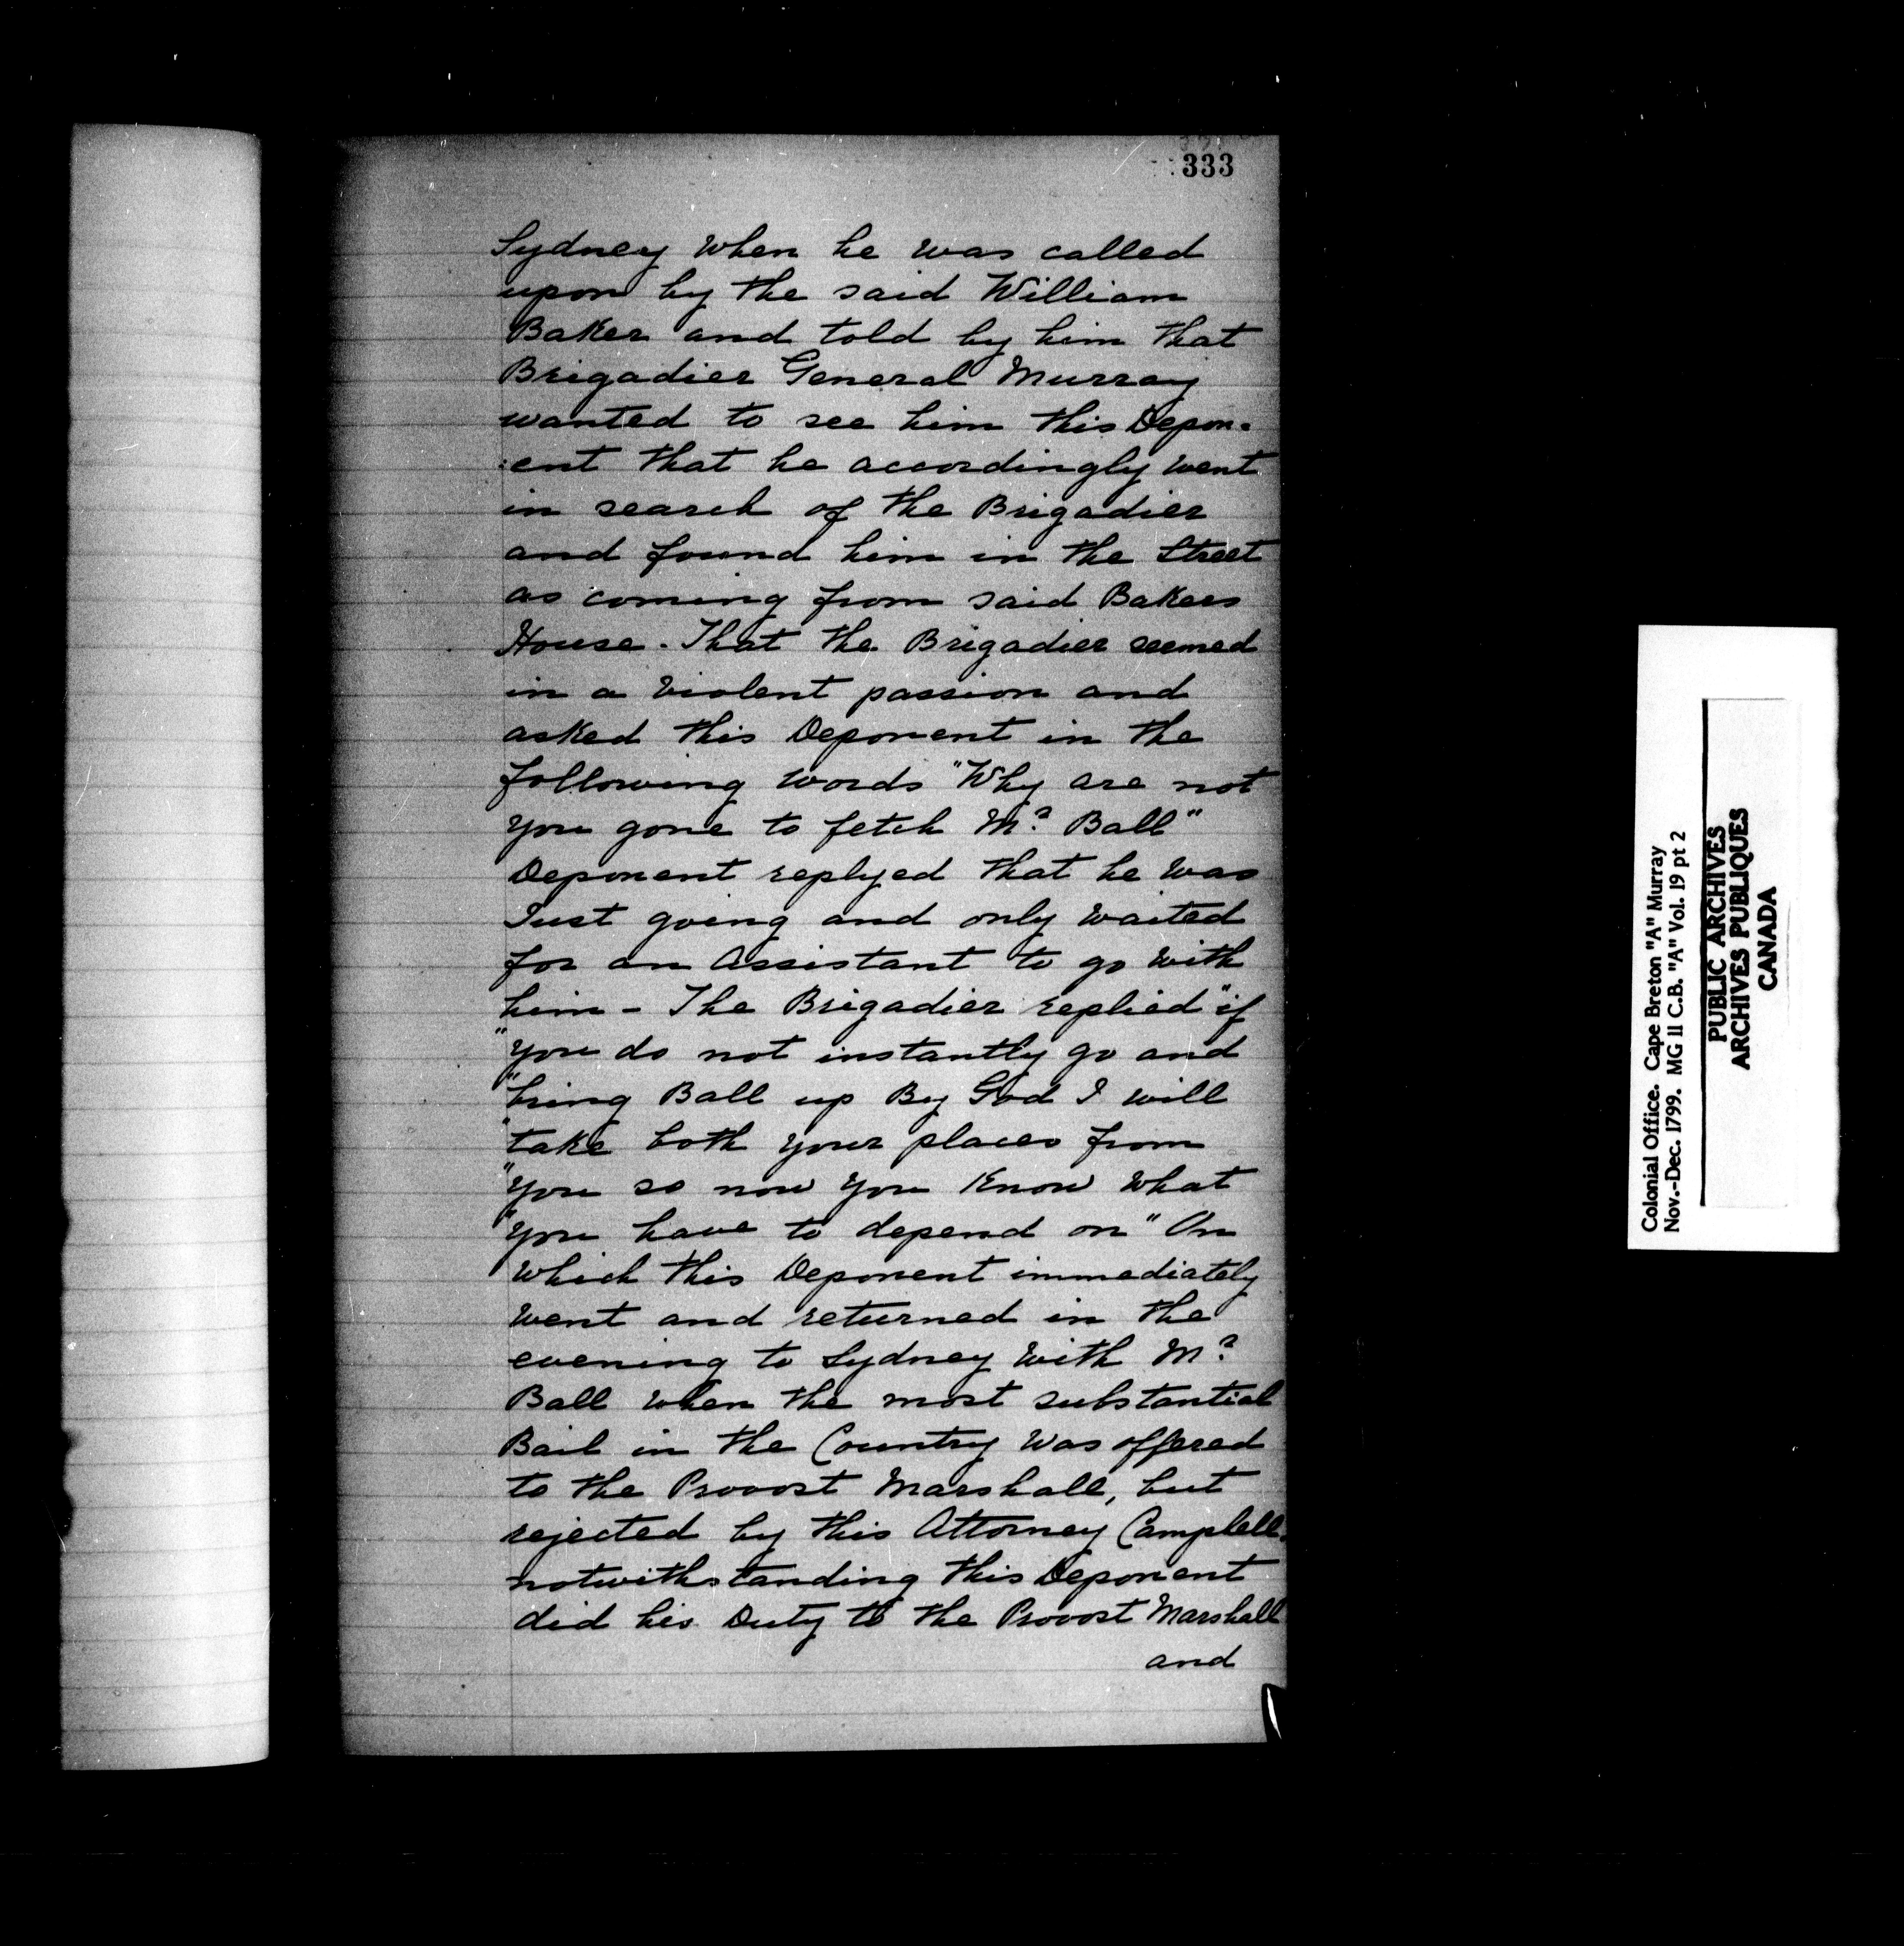 333
Sydney when he was called
upon by the said William
Baker and told by him that
Brigadier General Murray
wanted to see him this Depon-
:ent that he accordingly went
in search of the Brigadier
and found him in the Street
as coming from said Bakers
House. That the Brigadier seemed
in a violent passion and
asked this Deponent in the
following words "Why are not
you gone to fetch Mr. Ball"
Deponent replyed that he was
Just going and only waited
for an Assistant to go with
him - The Brigadier replied "if
"you do not instantly go and
"bring Ball up By God I will
"take both your places from
"you so now you Know what
"you have to depend on" On
which this Deponent immediately
went and returned in the
evening to Sydney with Mr.
Ball when the most substantial
Bail in the Country was offered
to the Provost Marshall, but
rejected by this Attorney Campbell,
notwithstanding this Deponent
did his Duty to the Provost Marshall
and
Colonial Office. Cape Breton "A" Murray
Nov.-Dec. 1799. MG 11 C.B. "A" Vol. 19 pt 2
PUBLIC ARCHIVES
ARCHIVES PUBLIQUES
CANADA